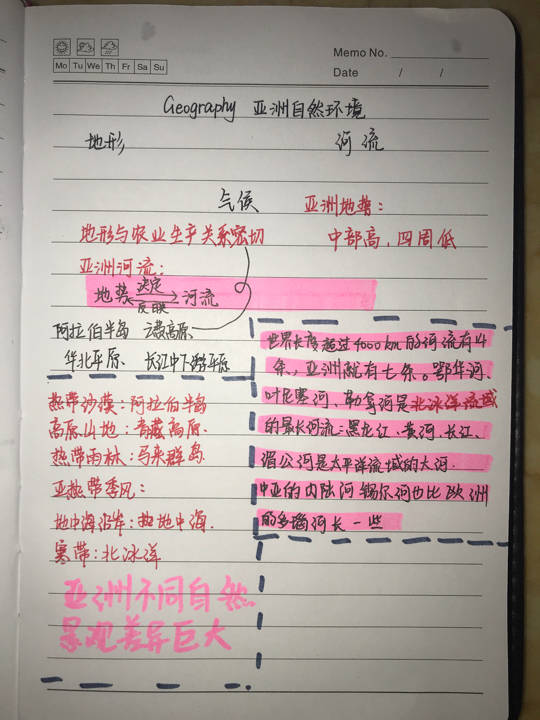 Memo No.
Mo Tu We Th Fr Sa Su
Date / /
Geography 亚洲自然环境
地形 河流
气候 亚洲地势:
地形与农业生产关系密切 中部高,四周低
亚洲河流:
地势 决定 河流
反映
阿拉伯半岛 云贵高原
华北平原 长江中下游平原
热带沙漠:阿拉伯半岛
高原山地:青藏高原.
热带雨林:马来群岛
亚热带季风:
地中海沿岸:地中海.
寒带:北冰洋
亚洲不同自然
景观差异巨大
世界长度超过4000km的河流有14
条,亚洲就有七条。鄂毕河.
叶尼塞河、勒拿河是北冰洋流域
的最长河流;黑龙江、黄河、长江、
湄公河是太平洋流域的大河.
中亚的内陆河锡尔河也比欧洲
的多瑙河长一些